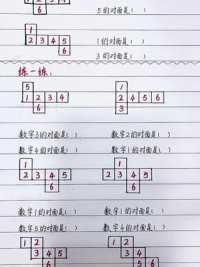 6
5的对面是:( )
1
2 3 4 5
6
1的对面是:( )
3的对面是:( )
练一练:
5
1 2 3 4
6
1
2 4 5 6
3
数字3的对面是:( ) 数字2的对面是:( )
数字4的对面是:( ) 数字1的对面是:( )
1
2 3 4 5
6
1
2 3 4 5
6
数字1的对面是:( ) 数字1的对面是:( )
数字5的对面是:( ) 数字4的对面是:( )
1 2
3 4 5
6
1 2
3 4
5 6